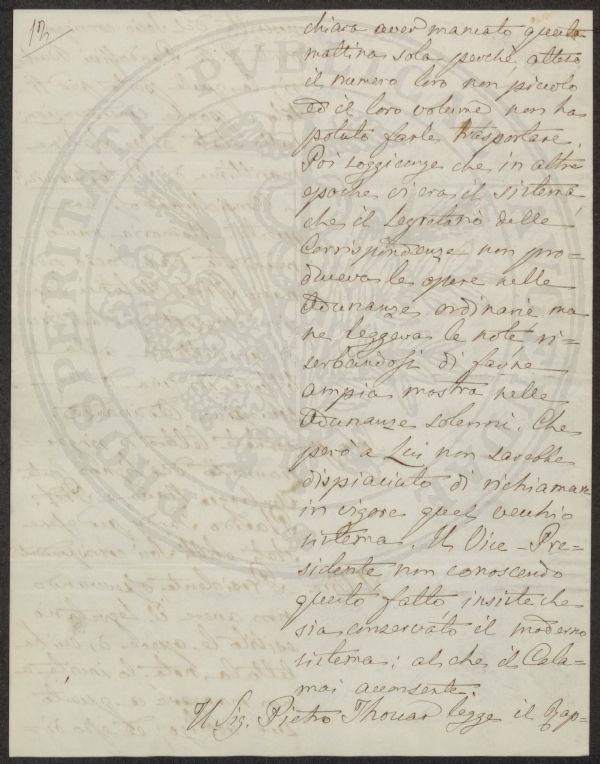 12
chiara aver mancato questa
mattina sola perché, atteso
il numero loro non piccolo
ed il loro volume, non ha
potuto farle trasportare.
Poi soggiunge che in altre
epoche vi era il sistema
che il Segretario delle
Corrispondenze non pro=
duceva le opere nelle
Adunanze ordinarie ma
ne leggeva le note, ri=
serbandosi di farne
ampia mostra nelle
Adunanze solenni. Che
però a Lui non sarebbe
dispiaciuto di richiamare
in vigore quel vecchio
sistema. Il Vice-Pre=
sidente, non conoscendo
questo fatto, insiste che
sia conservato il moderno
sistema; al che il Cala=
mai acconsente.
Il Sig. Pietro Thouar legge il Rap=
PROSPERITATI PVBLICAE